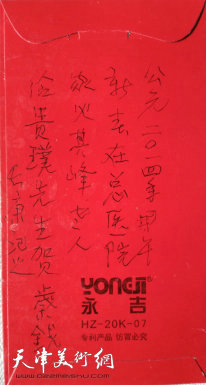 公元二〇一四年甲午
新春在总医院
敬以其峰老人
给贵璞先生贺岁钱
YONGJI®
永吉
HZ-20K-07
专利产品 仿冒必究
天津美術網